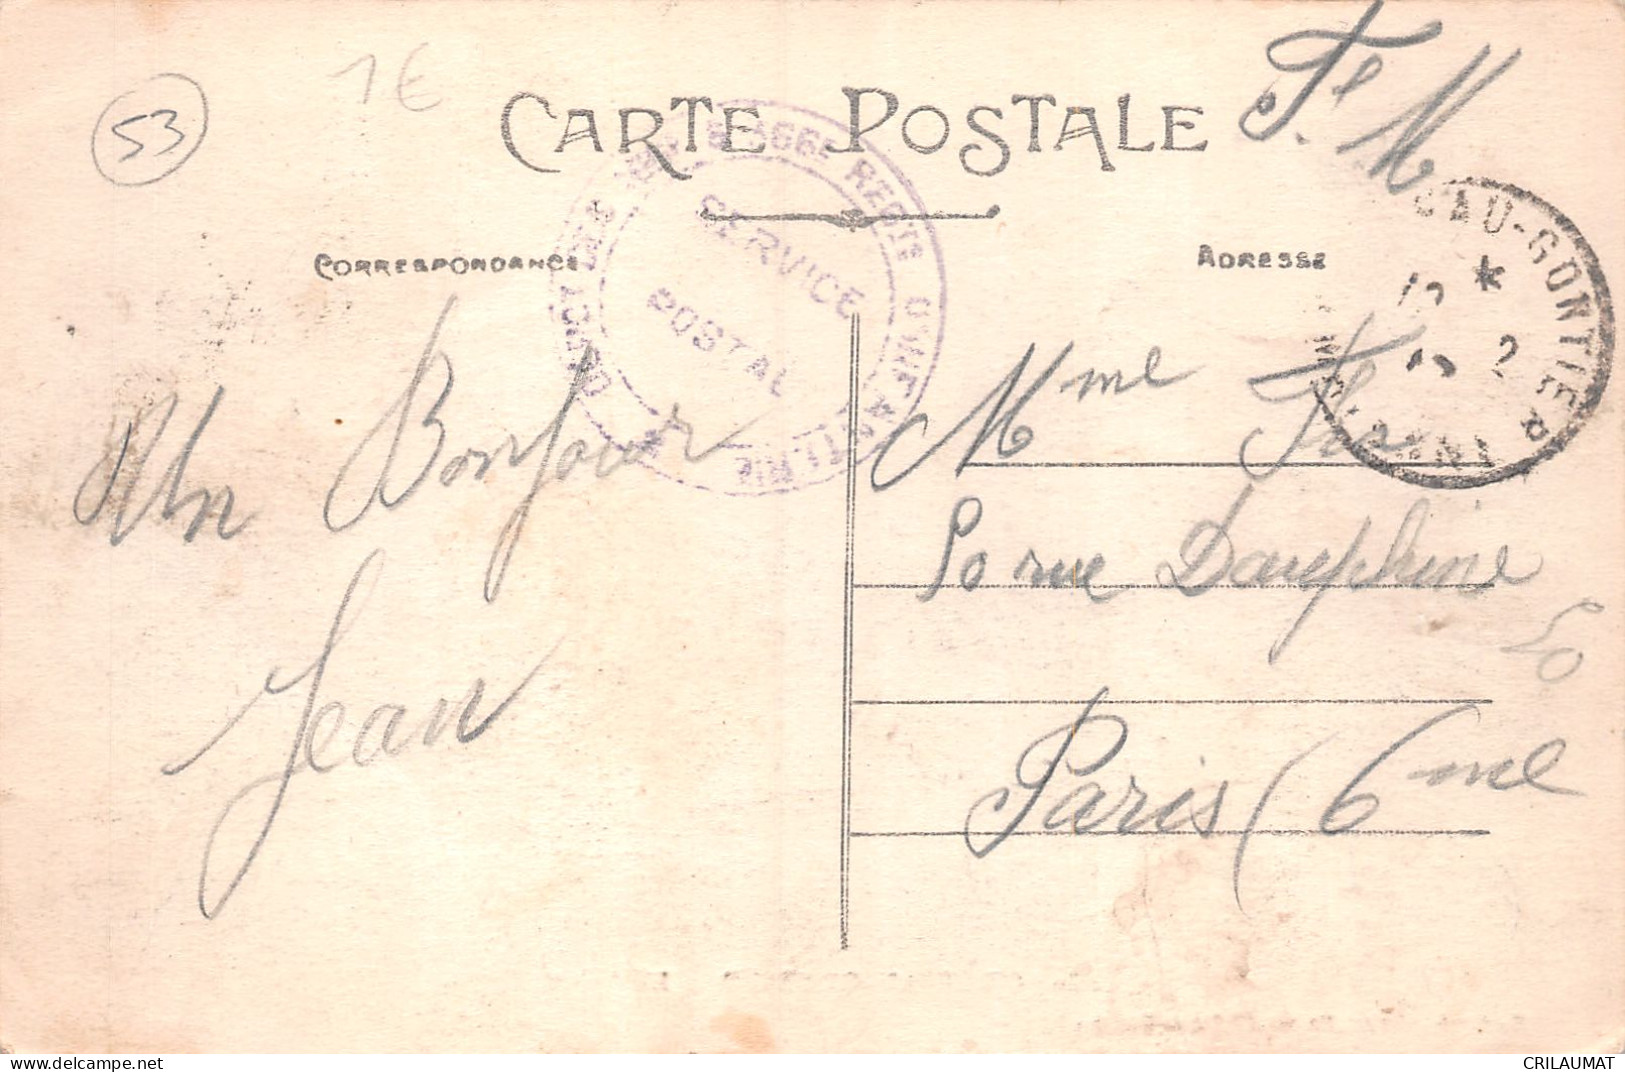 53
1€
CARTE POSTALE
Fe M
CORRESPONDANCE
ADRESSE
366E REGT D'INFANTERIE
SERVICE
POSTAL
EAU-GONTIER
*
2
MAYENNE
Un Bonjour
Jean
Mme
rue Dauphine
Paris (6me
CRILAUMAT